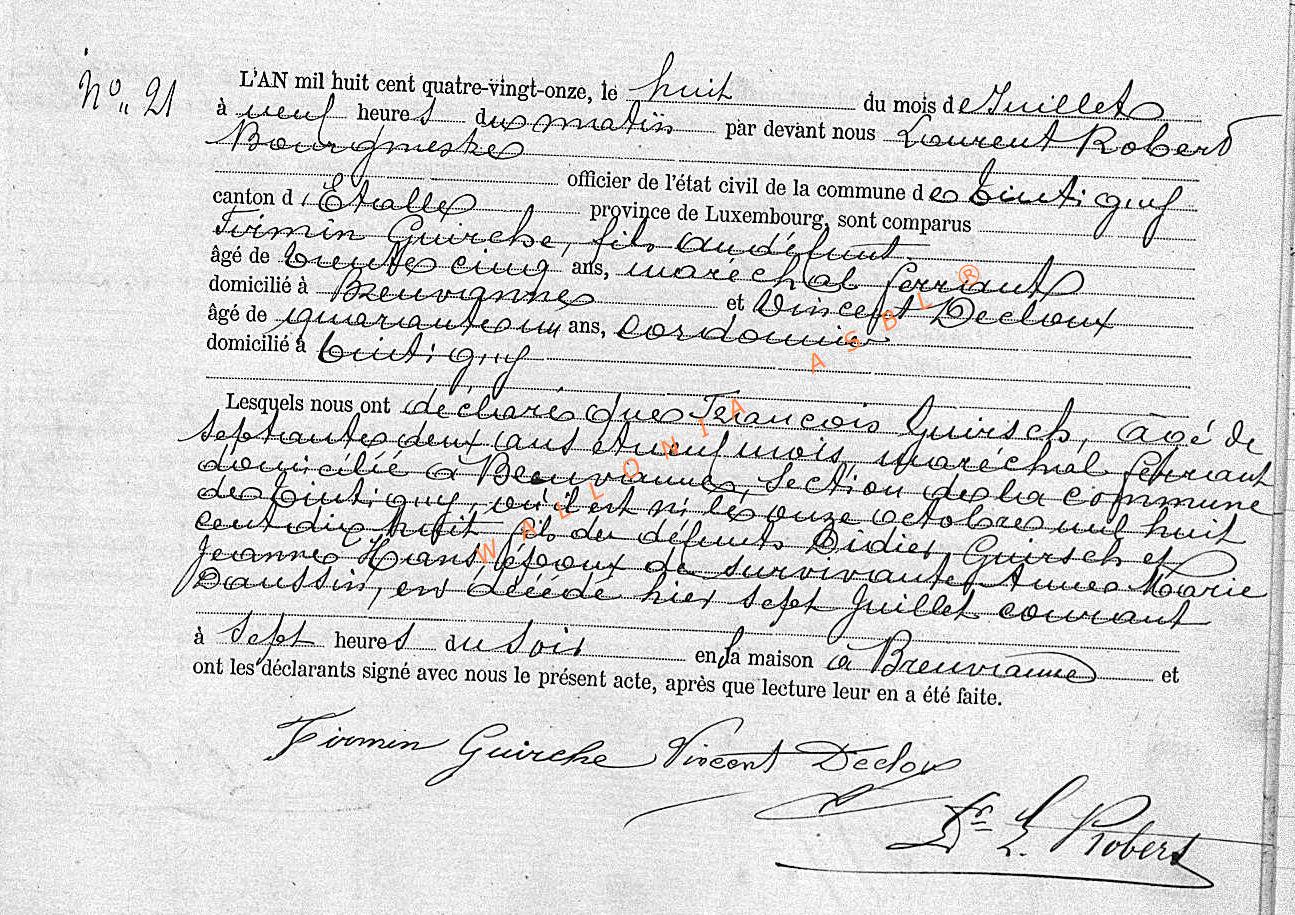 No. 21
L'AN mil huit cent quatre-vingt-onze, le huit du mois de Juillet
à neuf heures du matin par devant nous Laurent Robert
Bourgmestre
officier de l'état civil de la commune de Tintigny
canton d'Etalle province de Luxembourg, sont comparus
Firmin Guirche, fils du défunt
âgé de trente cinq ans, maréchal ferrant
domicilié à Breuvanne et Vincent Decloux
âgé de quarante un ans, cordonnier
domicilié à Tintigny
Lesquels nous ont déclaré que François Guirsch, âgé de
septante deux ans et neuf mois, maréchal ferrant
domicilié à Breuvanne, section de la commune
de Tintigny, où il est né le onze octobre mil huit
cent dix huit fils des défunts Didier Guirsch et
Jeanne Hans, époux de survivante Anne Marie
Daussin, est décédé hier sept Juillet courant
à sept heures du soir en la maison à Breuvanne et
ont les déclarants signé avec nous le présent acte, après que lecture leur en a été faite.
Firmin Guirche Vincent Decloux
Dr L. Robert
WALLONIA ASBL ®